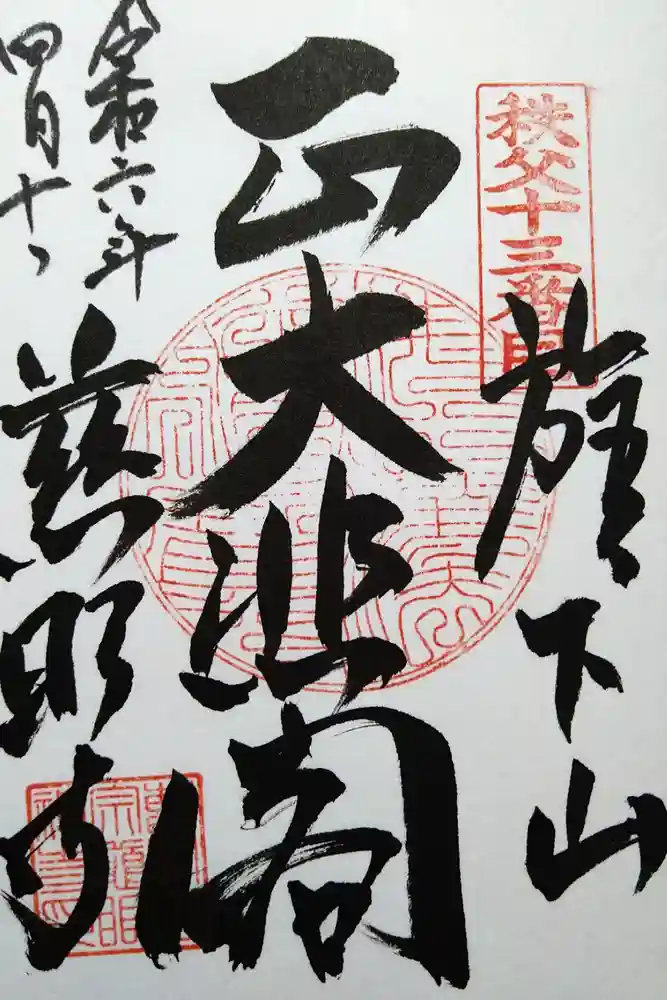 秩父十三番目
旗下山
正大悲閣
慈眼寺
令和六年
四月十